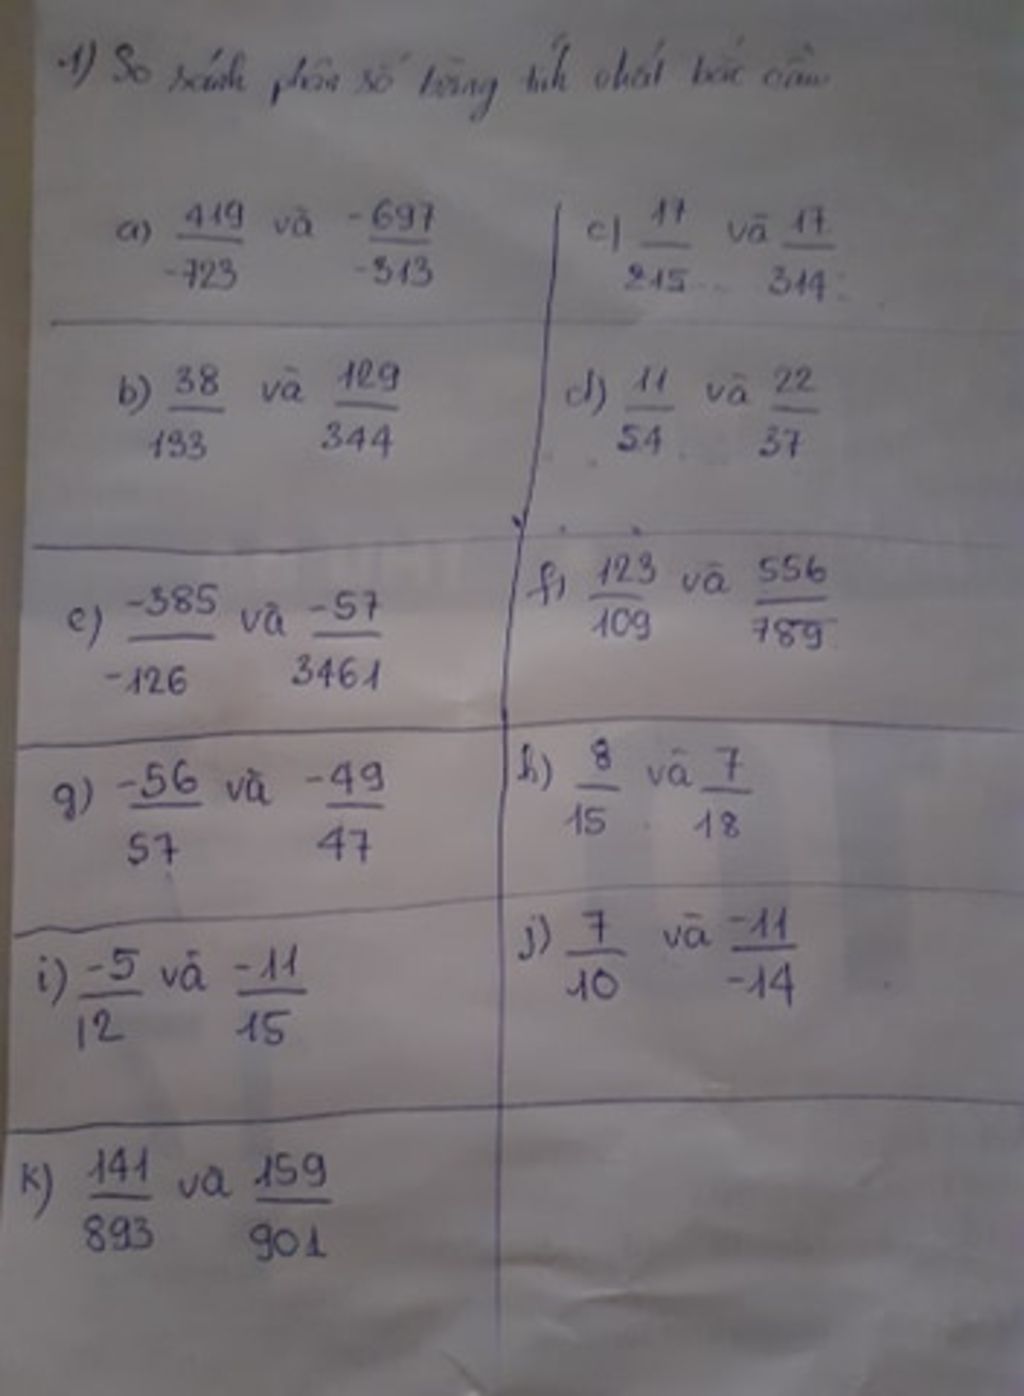 1) So sánh phân số bằng tính chất bắc cầu
a) 419/-723 và -697/-313
c) 17/215 và 17/314
b) 38/133 và 129/344
d) 11/54 và 22/37
e) -385/-126 và -57/3461
f) 123/109 và 556/789
g) -56/57 và -49/47
h) 8/15 và 7/18
i) -5/12 và -11/15
j) 7/10 và -11/-14
k) 141/893 và 159/901